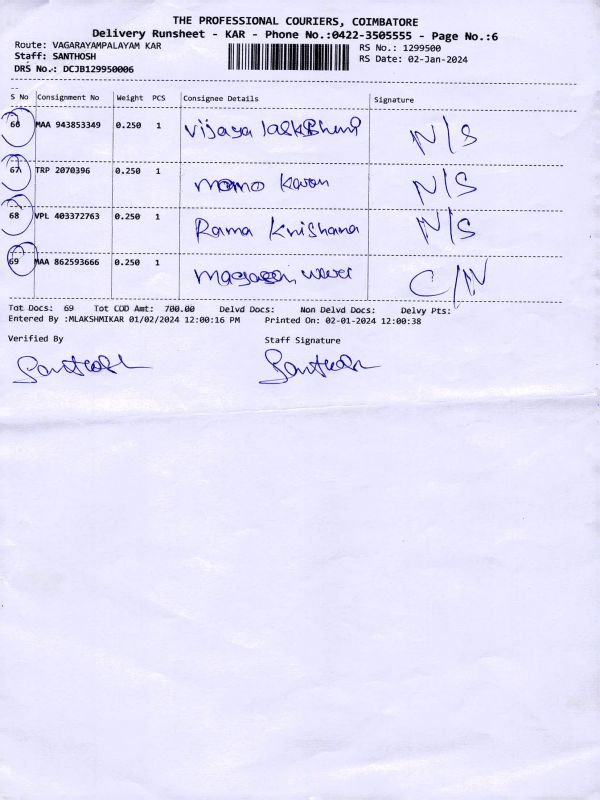 THE PROFESSIONAL COURIERS, COIMBATORE
Delivery Runsheet - KAR - Phone No.:0422-3505555 - Page No.:6
Route: VAGARAYAMPALAYAM KAR RS No.: 1299500
Staff: SANTHOSH RS Date: 02-Jan-2024
DRS No.: DCJB129950006
S No Consignment No Weight PCS Consignee Details Signature
66 MAA 943853349 0.250 1 Vijaya N/S
67 TRP 2070396 0.250 1 N/S
68 VPL 403372763 0.250 1 Rama Krishana N/S
69 MAA 862593666 0.250 1 C/N
Tot Docs: 69 Tot COD Amt: 700.00 Delvd Docs: Non Delvd Docs: Delvy Pts:
Entered By :MLAKSHMIKAR 01/02/2024 12:00:16 PM Printed On: 02-01-2024 12:00:38
Verified By Staff Signature
Santhosh Santhosh